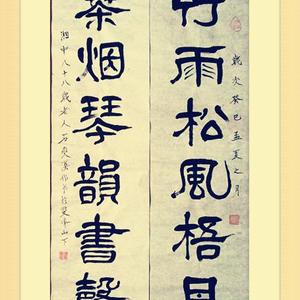 歲次癸巳孟夏之月
竹雨松風梧月
茶烟琴韻書聲
湘中八十八歲老人石 山下